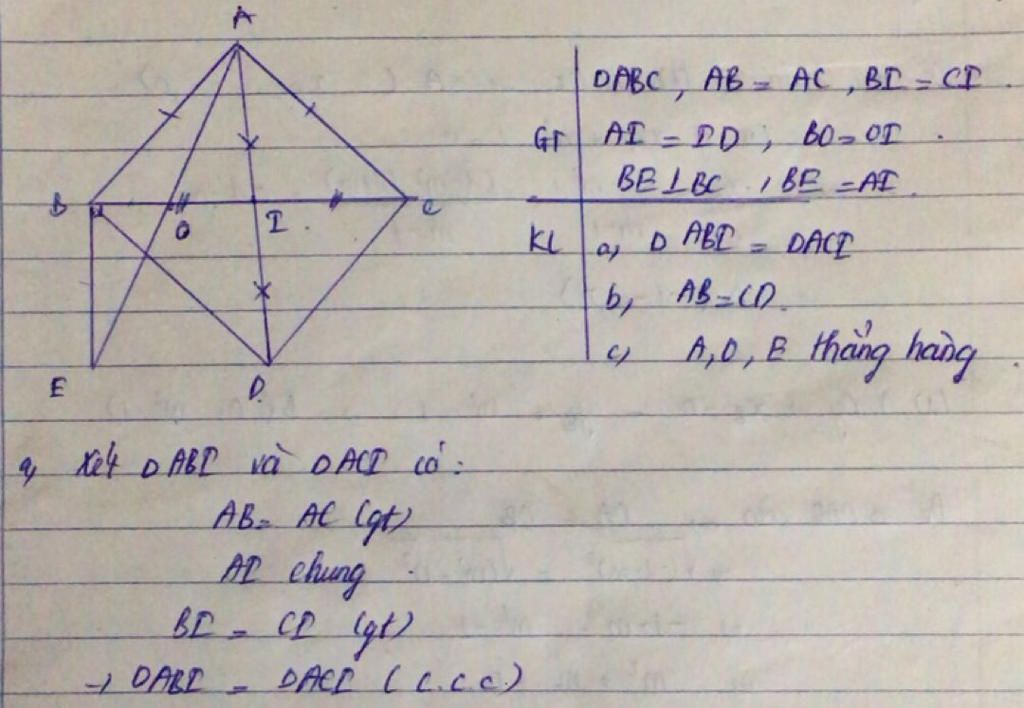 A
B
O
I
C
E
D
GT
ΔABC, AB = AC, BI = CI.
AI = ID, BO = OI.
BE ⊥ BC, BE = AI.
KL
a, Δ ABI = ΔACI
b, AB = CD.
c, A, O, E thẳng hàng
a, Xét ΔABI và ΔACI có:
AB = AC (gt)
AI chung.
BI = CI (gt)
→ ΔABI = ΔACI (c.c.c)